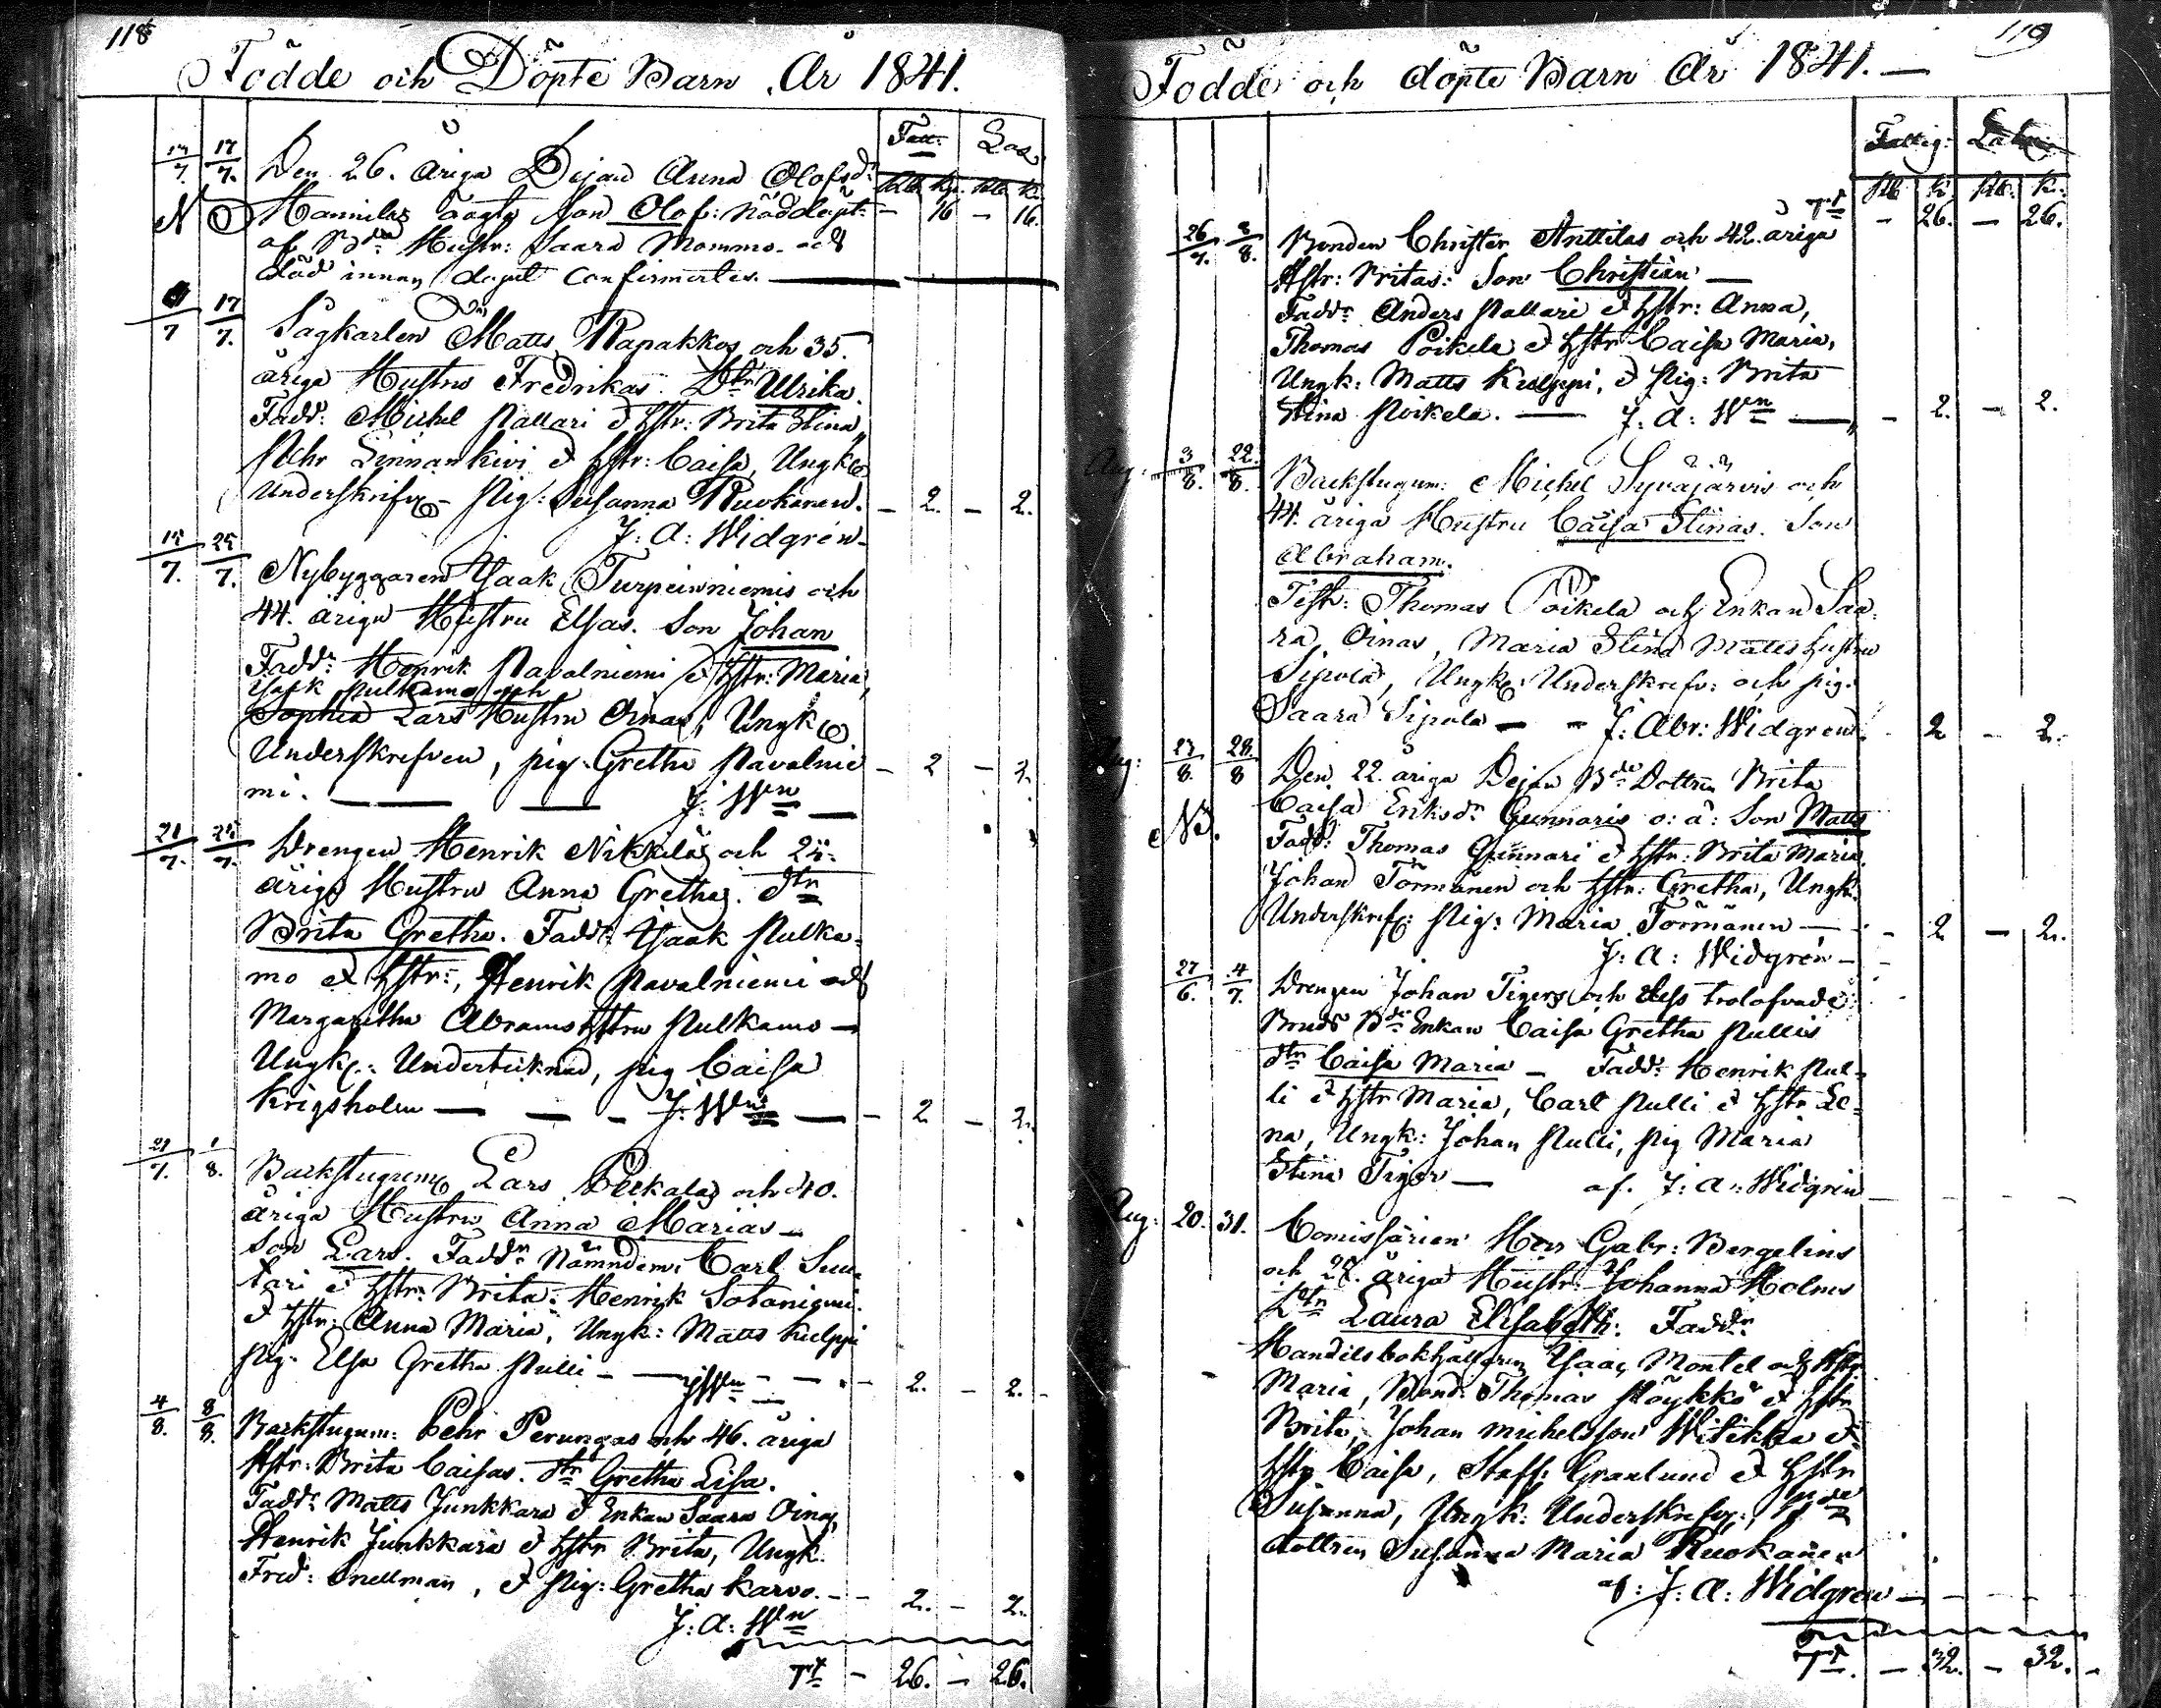 118
Födde och Döpte Barn År 1841.
Fatt. Las
Rub. Kp. Rub. K.
17/7. 17/7. Den 26. åriga Dejan Anna Olofsdr
N Hannilas oägta Son Olof: nöddöpt - 16 - 16.
af Bde Hustr: Saara Mommo och
död innan döpet confirmertes.
/7 17/7. Sågkarlen Matts Rapakkos och 35.
åriga Hustru Fredrikas Dtr Ulrika.
Fadd: Michel Pallari & Hstr: Brita Stina,
Pehr Linnankivi & Hstr: Caisa, Ungk
Underskrifv - Pig: Susanna Ruokanen. - 2. - 2.
J: A: Widgrén -
15/7. 25/7. Nybyggaren Isaak Turpeinniemis och
44. åriga Hustru Elsas. Son Johan
Fadd: Henrik Pavalniemi & Hstr: Maria,
Isak Pulkamo och
Sophia Lars Hustru Oinas, Ungk
Underskrefven, pig Gretha Pavalnie - 2 - 2.
mi. J: Wn
21/7. 25/7. Drengen Henrik Nikkiläs och 25.
åriga Hustru Anna Grethas. dtr
Brita Gretha. Fadd: Isaak Pulka-
mo & Hstr:, Henrik Pavalniemi och
Margaretha Abrams Hstru Pulkamo -
Ungk: Undertecknad, pig Caisa
Krigsholm - - - J: Wn - 2 - 2.
21/7. 1/8. Backstugum Lars Pekkalas och 40.
åriga Hustru Anna Marias -
Son Lars. Fadd: Nämndem: Carl Suu-
tari & Hstr: Brita: Henrik Sotaniemi
& Hstr: Anna Maria, Ungk: Matts Kulppi
Pig: Elsa Gretha Pulli - - JWn - - 2. - 2.
4/8. 8/8. Backstugum: Pehr Perungas och 46. åriga
Hstr: Brita Caisas. dtr Gretha Lisa.
Fadd: Matts Junkkara & Enkan Saara Oinas,
Henrik Junkkara & Hstr Brita, Ungk.
Fred: Snellman, & Pig: Gretha Karvo. - - 2. - 2.
J: A: Wn
Tt - 26. - 26.
119
Födde och döpte Barn År 1841. -
Fattig:
Rub K. Rub. K.
Tt - 26. - 26.
26/7. 8/8. Bonden Christer Anttilas och 42. åriga
Hstr: Britas: Son Christian -
Fadd: Anders Pallari & Hstr: Anna,
Thomas Poikela & Hstr Caisa Maria,
Ungk: Matts Kulppi, & Pig: Brita
Stina Poikela. - J: A: Wn - - 2. - 2.
Aug: 3/8. 22./8. Backstugum: Michel Syväjärvis och
44. åriga Hustru Caisa Stinas. Son
Abraham.
Test: Thomas Poikela och Enkan Saa-
ra, Oinas, Maria Stina Matts hustru
Sipola, Ungk: Underskrefv: och pig.
Saara Sipola - - J: Abr: Widgren. - 2 - 2.
Aug: 23/8. 28./8 Den 22. åriga Dejan Bde Dottren Brita
Caisa Eriksdr Gunnaris o: ä: Son Matts
NB. Fadd: Thomas Gunnari & Hstr: Brita Maria.
Johan Törmänen och Hstr: Gretha, Ungk.
Underskref: Pig: Maria Törmänen - - 2 - 2.
J: A: Widgrén -
27/6. 4/7. Drengen Johan Tigers och dess trolofvade
Brud Bde Enkan Caisa Gretha Pullis
dtr Caisa Maria - Fadd: Henrik Pul-
li & Hstr Maria, Carl Pulli & Hstr Le-
na, Ungk: Johan Pulli, pig Maria
Stina Tiger - af. J: A: Widgrén
Aug: 20. 31. Comissarien Herr Gabr: Bergelins
och 27. åriga Hustr: Johanna Holms
Dtr Laura Elisabeth. Fadd:
Handelsbokhållaren Isaac Montel och Hstr
Maria, Bond: Thomas Pöykkö & Hstr
Brita, Johan Michelsson Witikka &
Hstr Caisa, Staff: Granlund & Hstr
Susanna, Ungk: Underskrefv:, Bde
dottren Susanna Maria Ruokanen
af: J: A: Widgren -
Tt. - 32. - 32. -